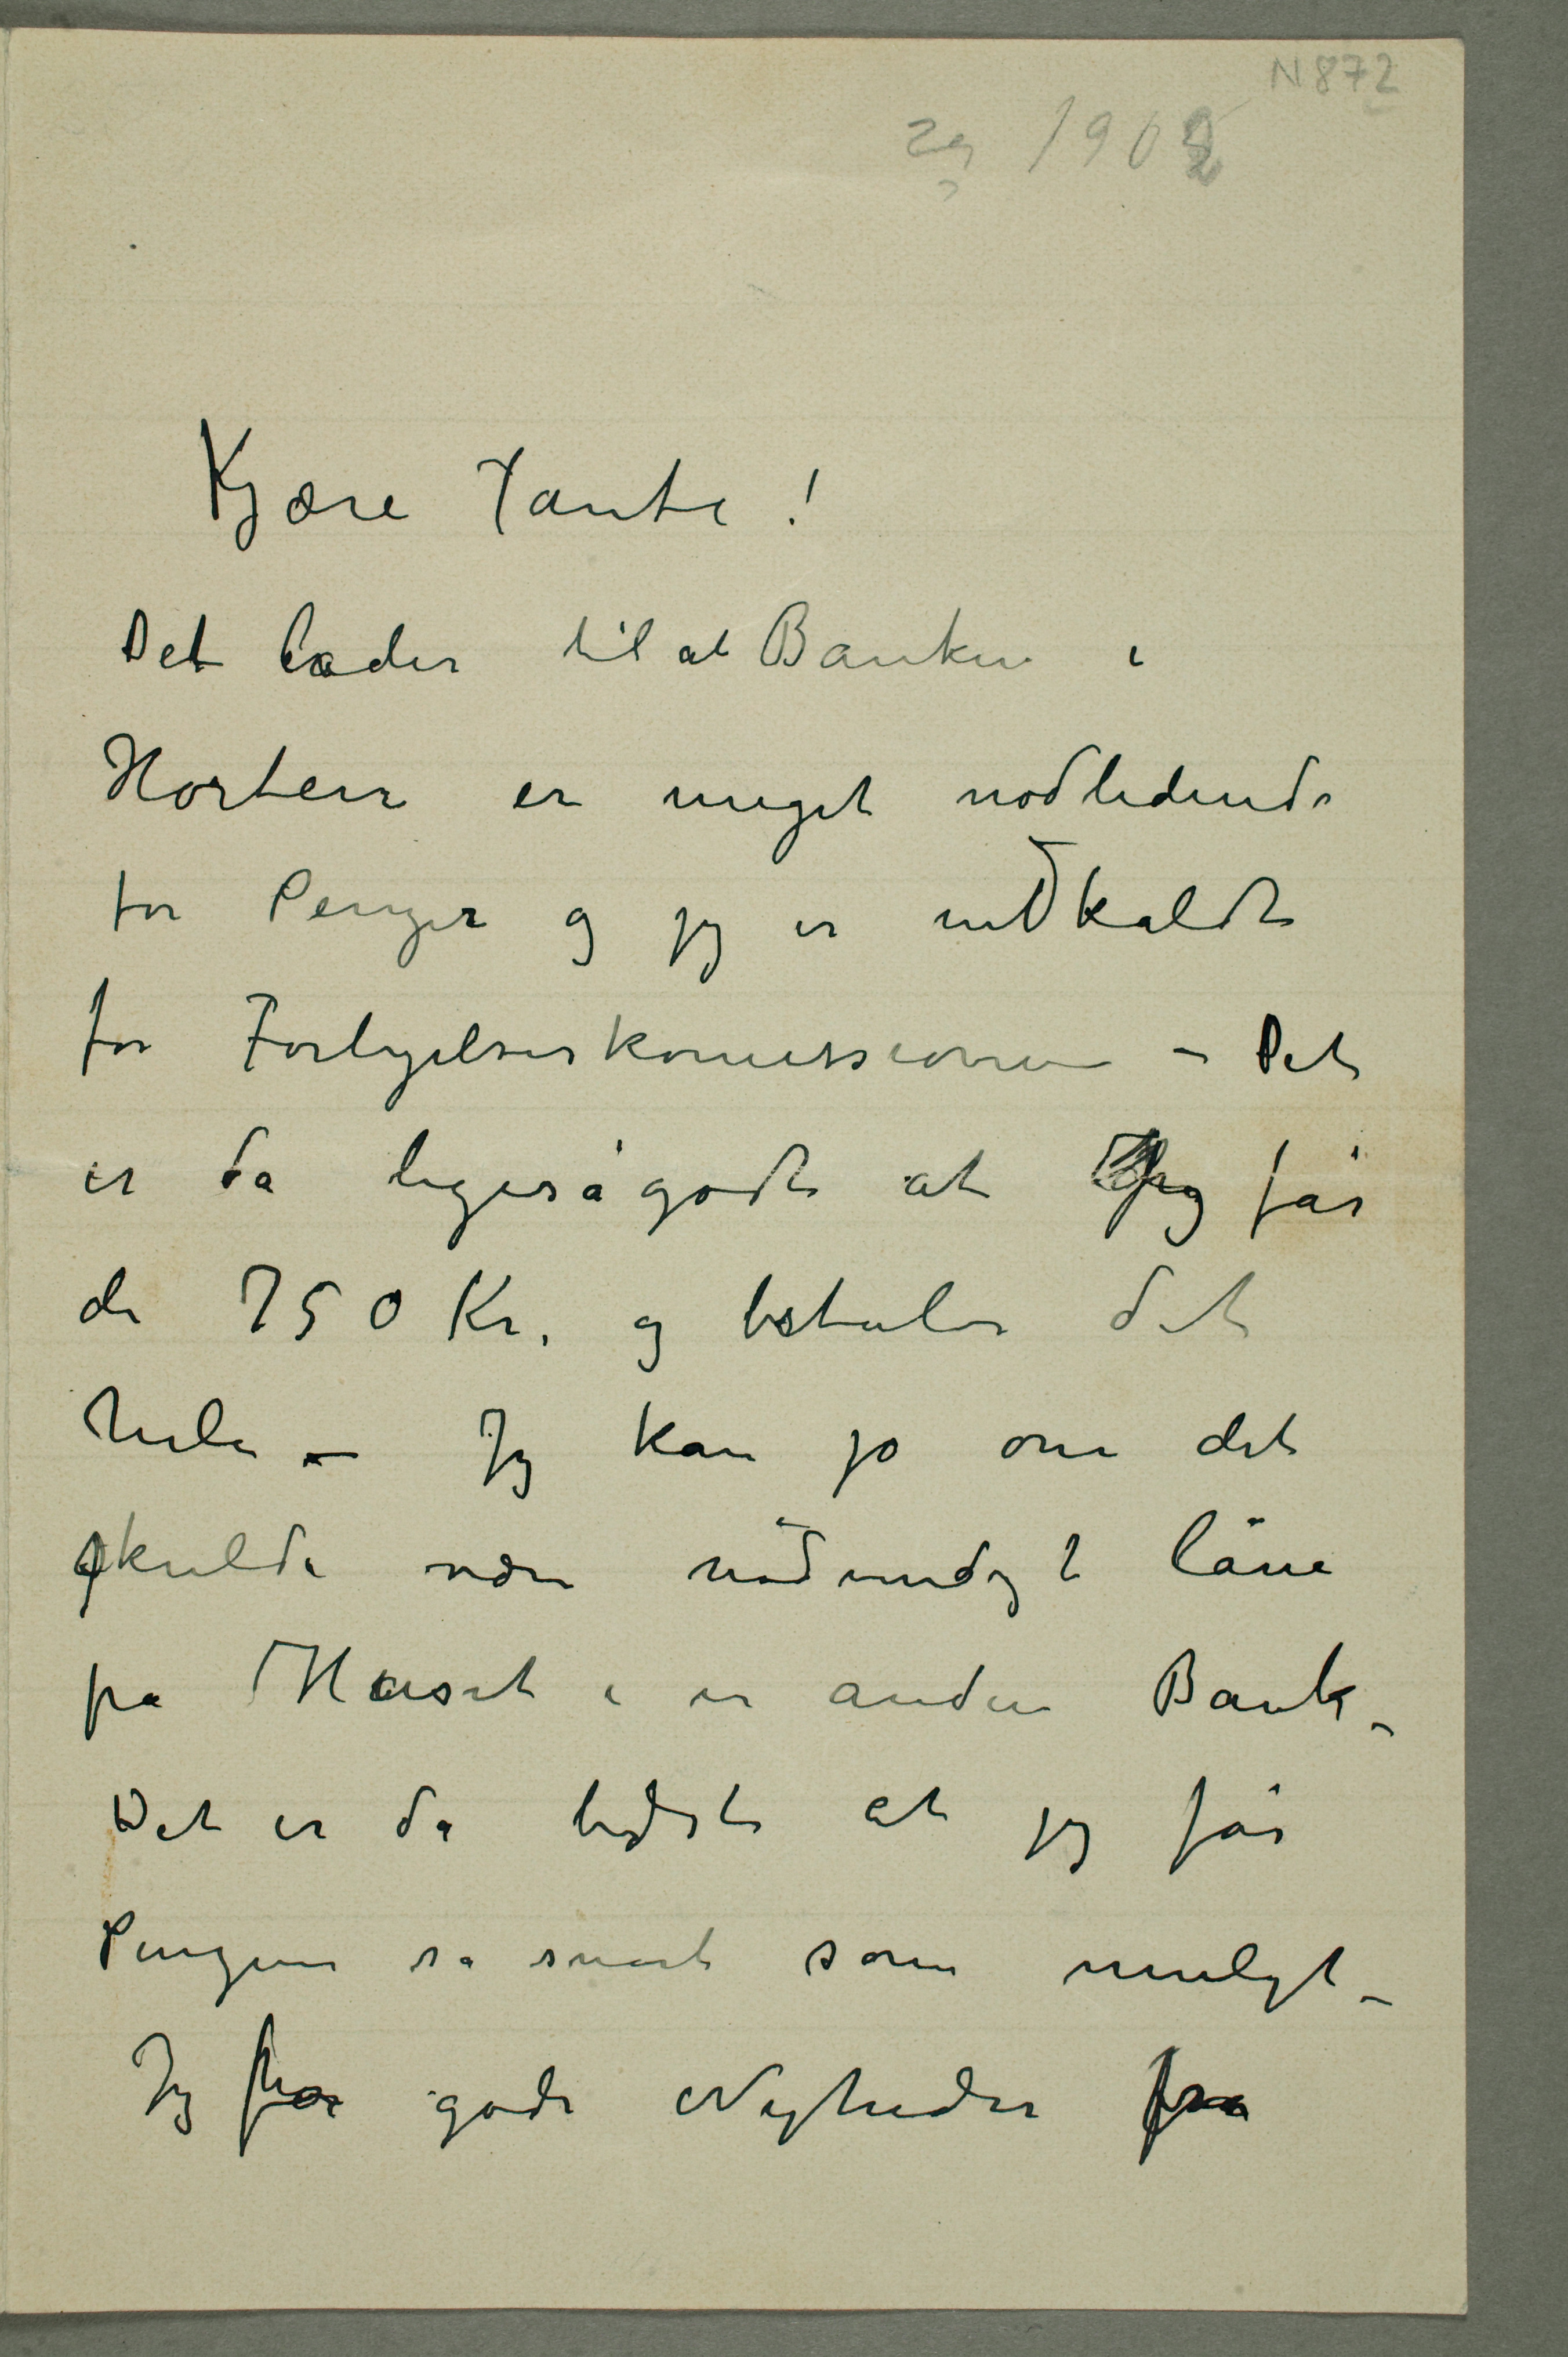 N 872
29 1902
Kjære Tante!
Det lader til at Banken i
Horten er meget nødlidende
for Penger og jeg er indkaldt
for Forligelseskomissionen – Det
er da ligesågodt at jeg får
de 750 Kr. og betaler det
hele – Jeg kan jo om det
skulde være nødvendigt låne
på Huset i en anden Bank –
Det er da bedst at jeg får
Pengene så snart som muligt –
Jeg har gode Nyheder fra